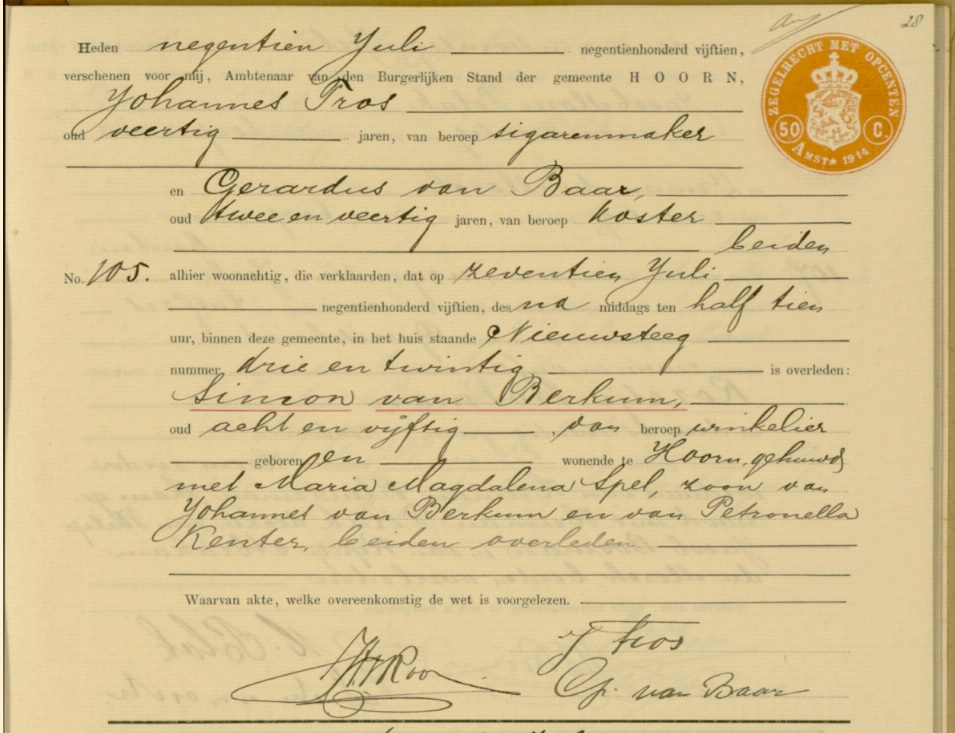 28
Heden negentien Juli negentienhonderd vijftien,
verschenen voor mij, Ambtenaar van den Burgerlijken Stand der gemeente HOORN,
Johannes Tros
oud veertig jaren, van beroep sigarenmaker
en Gerardus van Baar,
oud twee en veertig jaren, van beroep koster
beiden
No. 105. alhier woonachtig, die verklaarden, dat op zeventien Juli
negentienhonderd vijftien, des na middags ten half tien
uur, binnen deze gemeente, in het huis staande Nieuwsteeg
nummer drie en twintig is overleden:
Simon van Berkum,
oud acht en vijftig, van beroep winkelier
geboren en wonende te Hoorn, gehuwd
met Maria Magdalena Spel, zoon van
Johannes van Berkum en van Petronella
Kenter, beiden overleden
Waarvan akte, welke overeenkomstig de wet is voorgelezen.
J Tros
G. van Baar
ZEGELRECHT MET OPCENTEN
50 C.
AMST 1914